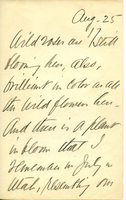 Aug. 25
Wild roses are still
blooming here, also,
brilliant in color as all
the wild flowers here
And there is a plant
in bloom that I
remember in July in